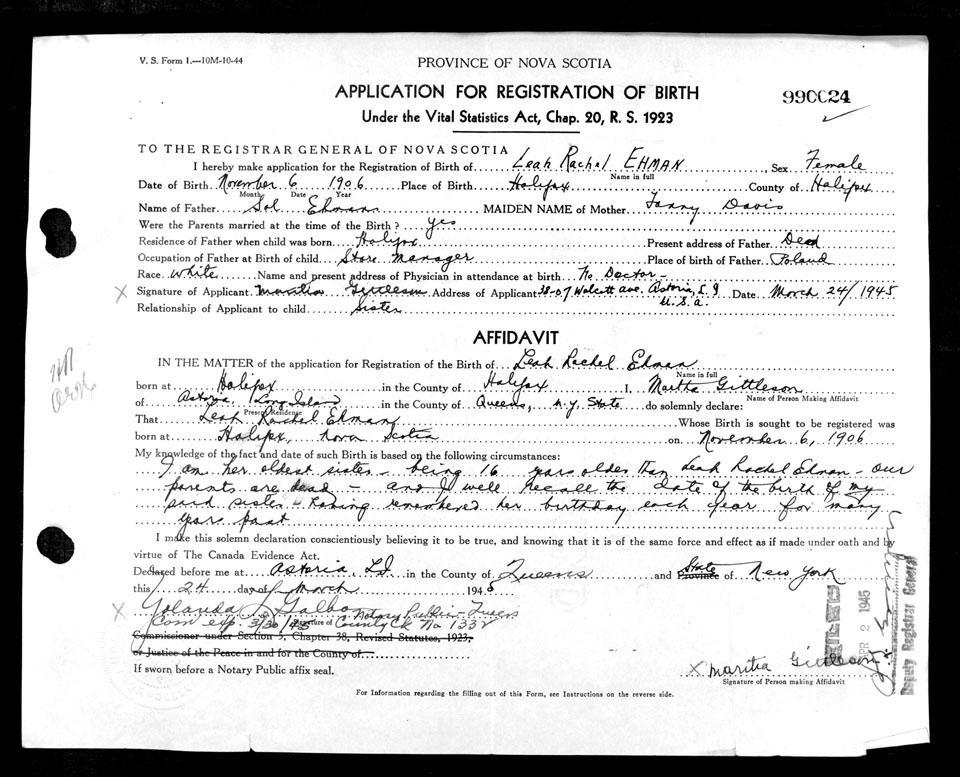 V. S. Form 1.—10M-10-44
PROVINCE OF NOVA SCOTIA
APPLICATION FOR REGISTRATION OF BIRTH
990024
Under the Vital Statistics Act, Chap. 20, R. S. 1923
TO THE REGISTRAR GENERAL OF NOVA SCOTIA
I hereby make application for the Registration of Birth of Leah Rachel EHMAN, Sex Female
Name in full
Date of Birth November 6 1906 Place of Birth Halifax County of Halifax
Month Date Year
Name of Father Sol Ehman MAIDEN NAME of Mother Fanny Davis
Were the Parents married at the time of the Birth? yes
Residence of Father when child was born Halifax Present address of Father Dead
Occupation of Father at Birth of child Store Manager Place of birth of Father Poland
Race White Name and present address of Physician in attendance at birth No Doctor -
X Signature of Applicant Martha Gittleson Address of Applicant 38-07 Walcott Ave. Astoria, L I Date March 24/1945
U.S.A.
Relationship of Applicant to child Sister
AFFIDAVIT
IN THE MATTER of the application for Registration of the Birth of Leah Rachel Ehman
Name in full
born at Halifax in the County of Halifax I, Martha Gittleson
Name of Person Making Affidavit
of Astoria, Long Island in the County of Queens, N.Y. State do solemnly declare:
Present Residence
That Leah Rachel Ehman Whose Birth is sought to be registered was
born at Halifax, Nova Scotia on November 6, 1906
My knowledge of the fact and date of such Birth is based on the following circumstances:
I am her oldest sister - being 16 years older than Leah Rachel Ehman - our
parents are dead - and I well recall the date of the birth of my
said sister - having remembered her birthday each year for many
years past
I make this solemn declaration conscientiously believing it to be true, and knowing that it is of the same force and effect as if made under oath and by
virtue of The Canada Evidence Act.
Declared before me at Astoria, L I in the County of Queens and Province State of New York
this 24 day of March 1945
X Yolanda Galbo
Notary Public - Queens
Com exp. 3/30/ Signature of County Clk No 1332
Commissioner under Section 5, Chapter 38, Revised Statutes, 1923,
or Justice of the Peace in and for the County of
If sworn before a Notary Public affix seal.
X Martha Gittleson
Signature of Person making Affidavit
For Information regarding the filling out of this Form, see Instructions on the reverse side.
FILED
APR 2 1945
Deputy Registrar General